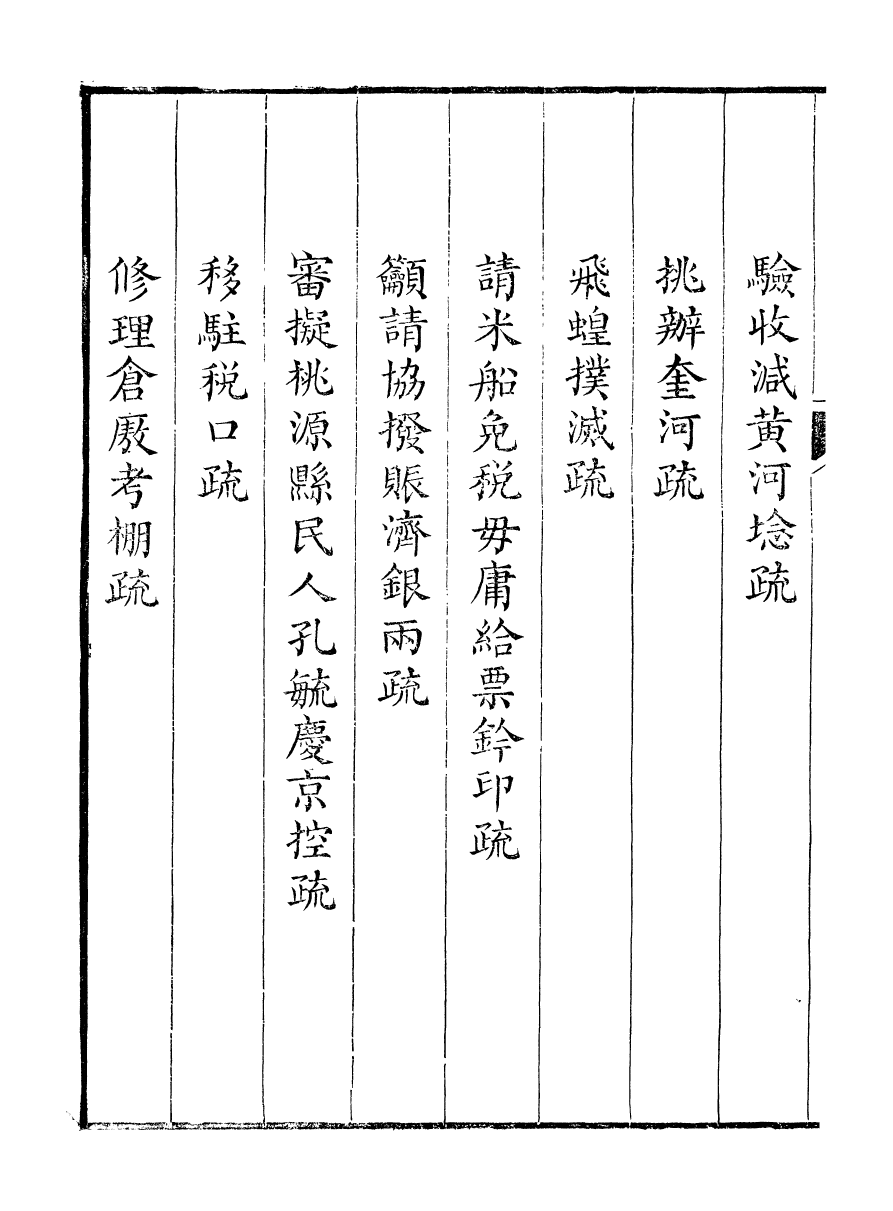 驗收減黃河埝疏
挑辦奎河疏
飛蝗撲滅疏
請米船免稅毋庸給票鈐印疏
籲請協撥賬濟銀兩疏
審擬桃源縣民人孔毓慶京控疏
移駐稅口疏
修理倉廒考棚疏